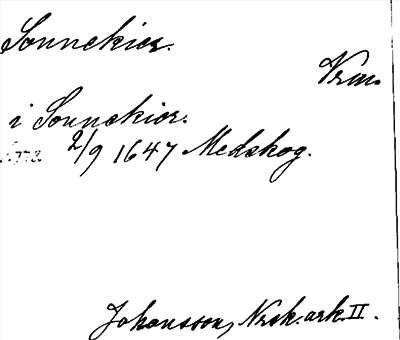 Sonnekier.
Vrm.
i Sonnekior.
2/9 1647 Medskog.
Johansson, Nrsk. ark. II.